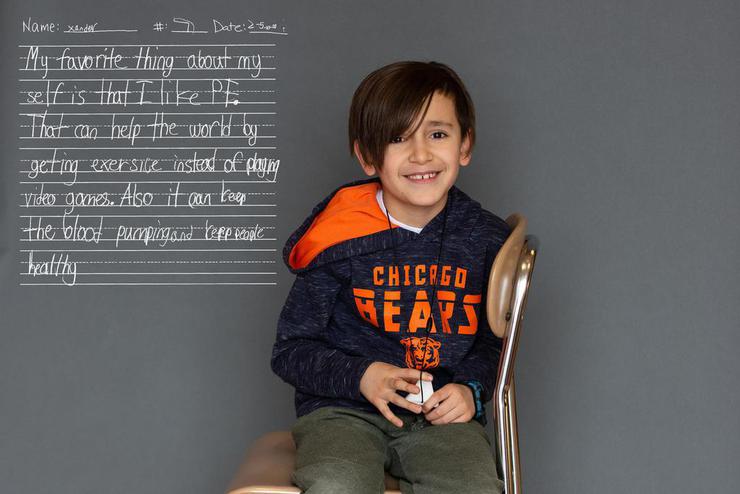 Name: xander #: 7 Date:
My favorite thing about my
self is that I like P.E.
That can help the world by
getting exersice instead of playing
video games. Also it can keep
the blood pumping and keep people
healthy
CHICAGO
BEARS